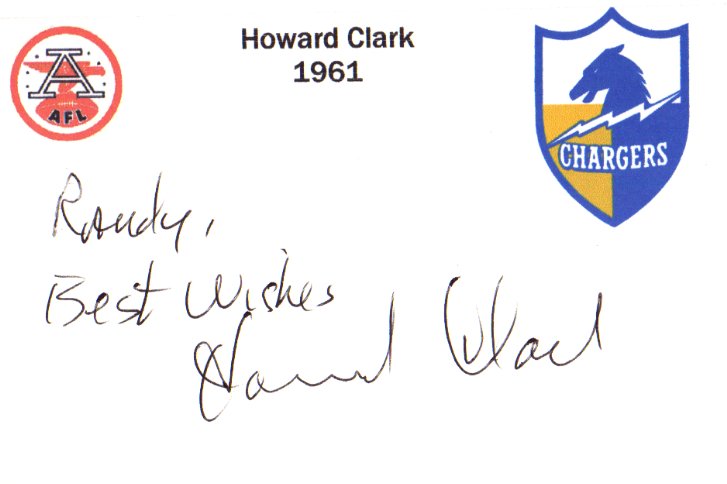 Howard Clark
1961
A
AFL
CHARGERS
Randy,
Best Wishes
Howard Clark